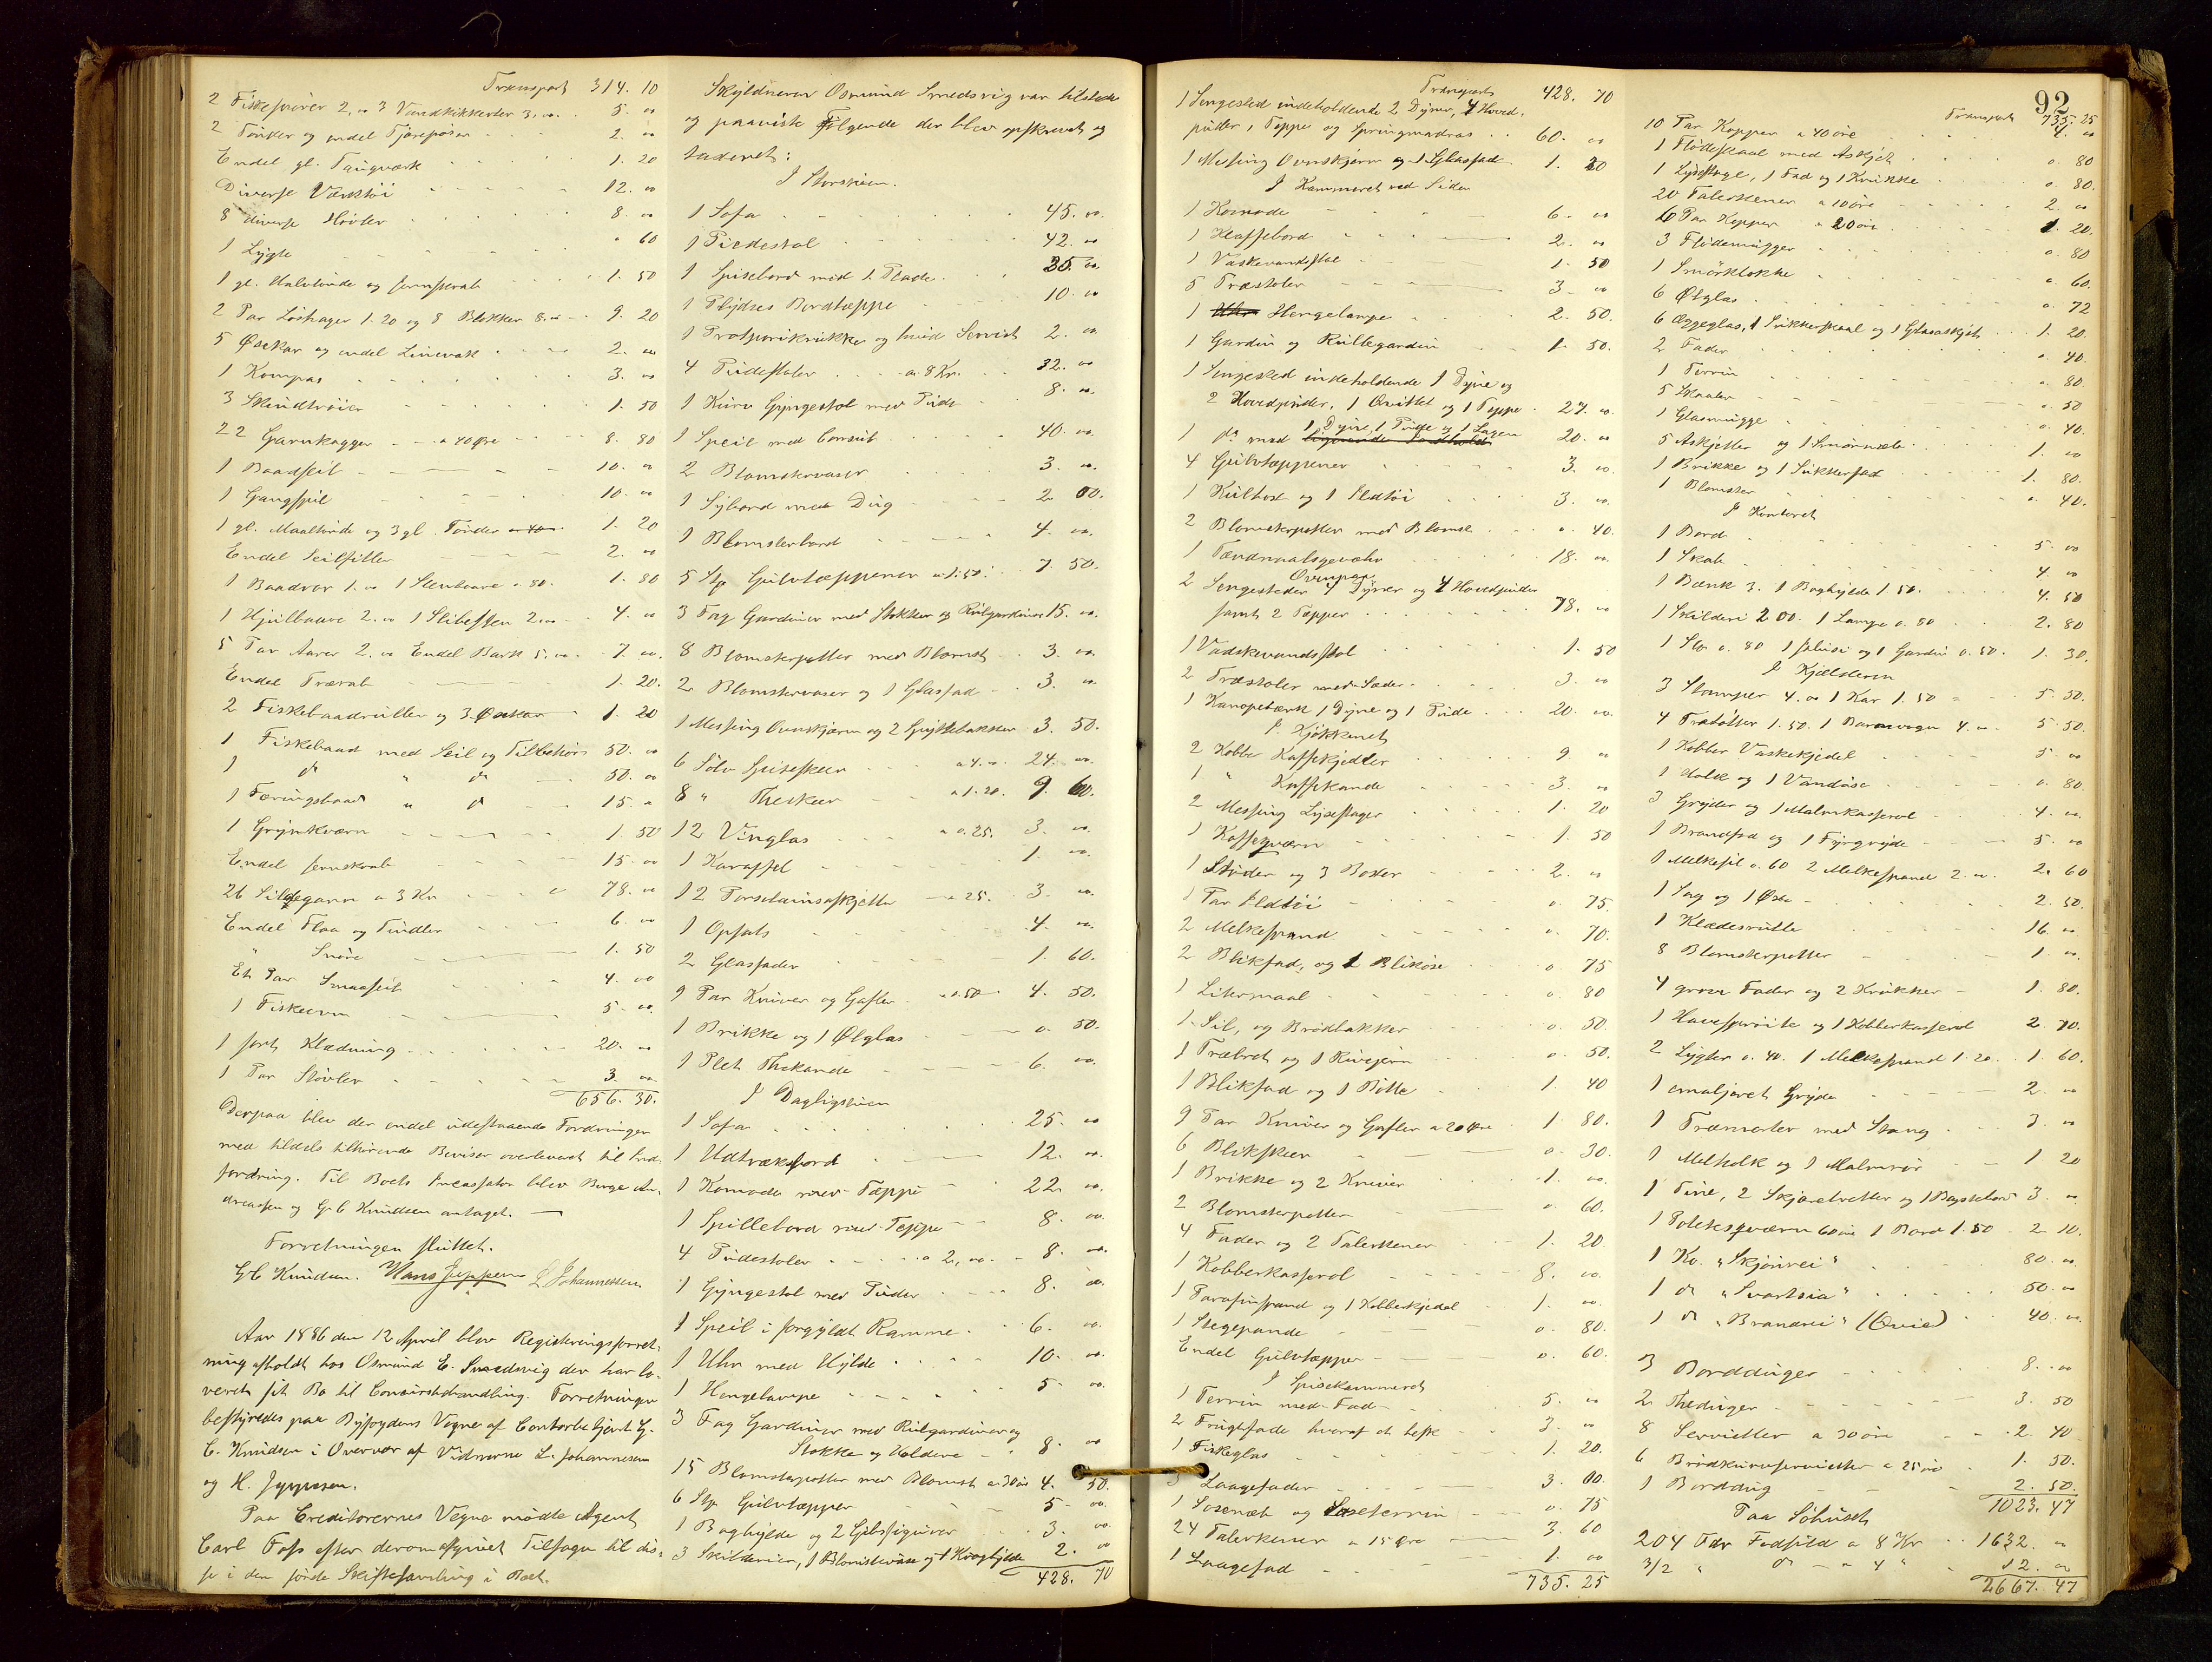 Transport 314. 10
2 Fiskesnører 2,00 3 Vandkikkerter 3,00. 5. 00
2 Tønder og endel Tjærepøser 2. 00
Endel gl. Taugværk 1. 20
Diverse Værktøi 12. 00
8 diverse Høvler 8. 00
1 Lygte " 60
1 gl. Halvtønde og jernskrab 1. 50
2 Par Løshager 1.20 og 8 Blokker 8.00 9. 20
5 Øsekar og endel Linevak 2. 00
1 Kompas 3. 00
3 Skindtrøier 1. 50
22 Garnkagger a 40 Øre 8. 80
1 Baadseil 10. 00
1 Gangspil 10. 00
1 gl. Maaltønde og 3 gl. Tønder 1. 20
Endel Seilfiller 2. 00
1 Baadvor 1.00 1 Stenbaare 0.80. 1. 80
1 Hjulbaare 2.00 1 Slibesten 2.00 4. 00
5 Par Aarer 2.00 Endel Bark 5.00 7. 00.
Endel Trærab 1. 20.
2 Fiskebaadruller og 3 Øsekar 1. 20
1 Fiskebaad med Seil og Tilbehør 50. 00
1 do " do 50. 00
1 Færingsbaad " do 15. "
1 Grynkværn 1. 50
Endel jernskrab 15. 00
26 Sildegarn a 3 Kr 78. 00
Endel Flaa og Tindler 6. 00
" Snøre 1. 50
Et Par Smaaseil 4. 00
1 Fiskeum 5. 00.
1 sort Klædning 20. 00
1 Par Støvler 3. 00
656. 30.
Derpaa blev der endel udestaaende Fordringer
med tildels tilhørende Beviser overleveret til Ind-
fordring. Til Boets Incassator blev Børge An-
dreassen og G. C. Knudsen antaget.
Forretningen sluttet.
G C Knudsen. Hans Jeppesen L Johannessen
Aar 1886 den 12 April blev Registreringsforret-
ning afholdt hos Osmund E. Smedsvig der har le-
veret sit Bo til Concursbehandling. Forretningen
bestyredes paa Byfogdens Vegne af Contorbetjent G.
C. Knudsen i Overvær af Vidnerne L. Johannesen
og H. Jeppesen.
Paa Creditorernes Vegne mødte Agent
Carl Foss efter derom afgivet Tilsagn til dis-
se i den første Skiftesamling i Boet.
Skyldneren Osmund Smedsvig var tilstede
og paaviste Følgende der blev opskrevet og
taxeret:
I Storstuen.
1 Sofa 45. 00.
1 Piedestal 42. 00
1 Spisebord med 1. Plade 35. 00.
1 Plydses Bordtæppe 10. 00
1 Præsenterbrikke og hvid Serviet 2. 00
4 Pudestoler a 8 Kr. 32. 00
1 Kurv Gyngestol med Pude 8. 00.
1 Speil med Consul 40. 00.
2 Blomstervaser 3. 00.
1 Sybord med Dug 2 00.
1 Blomsterbord 4. 00.
5 Stp Gulvtæppener a 1.50. 7. 50.
3 Fag Gardiner med Stokker og Rulgardiner 15. 00.
8 Blomsterpotter med Blomst 3. 00.
2 Blomstervaser og 1 Glasfad 3. 00
1 Messing Ovnskjærm og 2 Spyttebakker 3. 50.
6 Sølv Spiseskeer a 4. 00. 24. 00.
8 " Theskeer a 1.20. 9. 60.
12 Vinglas a 0.25. 3. 00.
1 Karaffel 1. 00.
12 Porselainsaskjetter a 25. 3. 00.
1 Opsats 4. 00.
2 Glasfader 1. 60.
9 Par Kniver og Gafler a 0.50 4. 50.
1 Brikke og 1 Ølglas 0. 50.
1 Plet Thekande 6. 00.
I Dagligstuen
1 Sofa 25. 00
1 Udtræksbord 12. 00.
1 Komode med Tæppe 22. 00.
1 Spillebord med Teppe 8. 00.
4 Pudestoler a 2,00. 8. 00.
1 Gyngestol med Puder 8. 00.
1 Speil i forgyldt Ramme 6. 00.
1 Uhr med Hylde 10. 00.
1 Hengelampe 5. 00.
3 Fag Gardiner med Rulgardiner og
Stokke og Holdere 8. 00
15 Blomsterpotter med Blomst a 30 øre 4. 50.
6 Stp Gulvtæpper 5. 00.
1 Boghylde og 2 Gibsfigurer 3. 00
3 Skilderier, 1 Blomstervase og 1 Kroghylde 2. 00
428. 70
Transport 428. 70
1 Sengested indeholdende 2 Dyner, 4 Hoved-
puder, 1 Teppe og Springmadras 60. 00
1 Messing Ovnskjærm og 1 Glasfad 1. 20
I Kammeret ved Siden
1 Komode 6. 00
1 Klaffebord 2. 00
1 Vaskevandsstol 1. 50
5 Træstoler 3. 00
1 Hengelampe 2. 50.
1 Gardin og Rullegardin 1. 50.
1 Sengested indeholdende 1 Dyne og
2 Hovedpuder, 1 Qvittel og 1 Teppe 27. 00.
1 do med 1 Dyne, 1 Pude og 1 Lagen 20. 00
4 Gulvtæppener 3. 00.
1 Kulkost og 1 Ildtøi 3. 00.
2 Blomsterpotter med Blomst 0. 40.
1 Tændnaalsgevæhr 18. 00.
Ovenpaa
2 Sengesteder 4 Dyner og 4 Hovedpuder
samt 2 Tæpper 78. 00
1 Vadskevandsstol 1. 50
2 Træstoler med Sæder 3. 00
1 Kanapebænk 1 Dyne og 1 Pude 20. 00.
I Kjøkkenet
2 Kobber Kaffekjedler 9. 00
1 " Kaffekande 3. 00
2 Messing Lysestager 1. 20
1 Kaffeqværn 1. 50
1 Støder og 3 Boxer 2. 00
1 Par Ildtøi 0. 75
2 Melkespand 0. 70.
2 Blikfad, og 1 Blikøse 0. 75
1 Litermaal 0. 80
1 Sil, og Brødbakker 0. 50.
1 Træbret og 1 Rivejern 0. 50.
1 Blikfad og 1 Bøtte 1. 40
9 Par Kniver og Gafler a 20 Øre 1. 80.
6 Blikskeer 0. 30.
1 Brikke og 2 Kniver 1. 00
2 Blomsterpotter 0. 60.
4 Fader og 2 Talerkener 1. 20
1 Kobberkasserol 8. 00.
1 Parafinspand og 1 Kobberkjedel 1. 00.
1 Stegepande 0. 80.
Endel Gulvtæpper 0. 60.
I Spisekammeret
1 Terrin med Fad 5. 00
2 Frugtfade hvoraf et 3. 00
1 Fiskeglas 1. 20.
5 Laagefader 3. 00.
1 Sosenæb og Soseterrin 0. 75
24 Talerkener a 15 Øre 3. 60
1 Laagefad 1. 00
735. 25
92
Transport 735. 25
10 Par Kopper a 40 øre 4. 00
1 Flødeskaal med Askjet 0. 80
1 Lysestage, 1 Fad og 1 Krukke 0. 80.
20 Talerkener a 10 øre 2. 00
6 Par Kopper a 20 øre 1. 20.
3 Flødemugger 0. 80
1 Smørklokke 0. 60.
6 Ølglas 0. 72
6 Æggeglas, 1 Sukkerskaal og 1 Glasaskjet 1. 20.
2 Fader 0. 40.
1 Terrin 0. 80.
5 Skaaler 0. 50
1 Glasmugge 0. 40.
5 Askjetter og 1 Smørnæb 1. 00
1 Brikke og 1 Sukkerfad 1. 80.
1 Blomster 0. 40.
I Kontoret
1 Bord 5. 00
1 Skab 4. 00
1 Bænk 3. 1 Boghylde 1.50. 4. 50
1 Skilderi 2.00. 1 Lampe 0.80 2. 80
1 Stp 0.80 1 og 1 Gardin 0.50. 1. 30.
I Kjælderen
3 Stamper 4.00 1 Kar 1.50 5. 50.
4 Træbøtter 1.50. 1 Barnevogn 4.00. 5. 50.
1 Kobber Vaskekjedel 5. 00
1 Holk og 1 Vandøse 0. 80.
3 Gryder og 1 Malmkasserol 4. 00.
1 Brandfad og 1 Fyrgryde 5. 00
1 Melkesil 0.60 2 Melkespand 2.00. 2. 60
1 Sag og 1 Øxe 2. 50.
1 Klædesrulle 16. 00
8 Blomsterpotter 1. 00.
4 grove Fader og 2 Krukker 1. 80.
1 Havesprøite og 1 Kobberkasserol 2. 70.
2 Lygter 0.40. 1 Melkespand 1.20. 1. 60.
1 emaljeret Gryde 2. 00
1 Træmorter med Stang 3. 00
1 Melholk og 1 Malmrør 1. 20
1 Tine, 2 Skjærebretter og 1 Bagstebord 3. 00
1 Poteteqværn 60 øre 1 Bord 1.50 2. 10.
1 Ko. "Skjønvei" 80. 00.
1 do "Svartsia" 50. 00
1 do "Brandrei" (Qvie) 40. 00.
3 Borddunger 8. 00
2 Theduger 3. 50
8 Servietter a 30 øre 2. 40
6 Brødkurvservietter a 25 øre 1. 50.
1 Borddug 2. 50.
1023. 47
Paa Søhuset
204 Tdr Fedsild a 8 Kr 1632. 00
3/2 " do " 4 " 12. 00
2667. 47